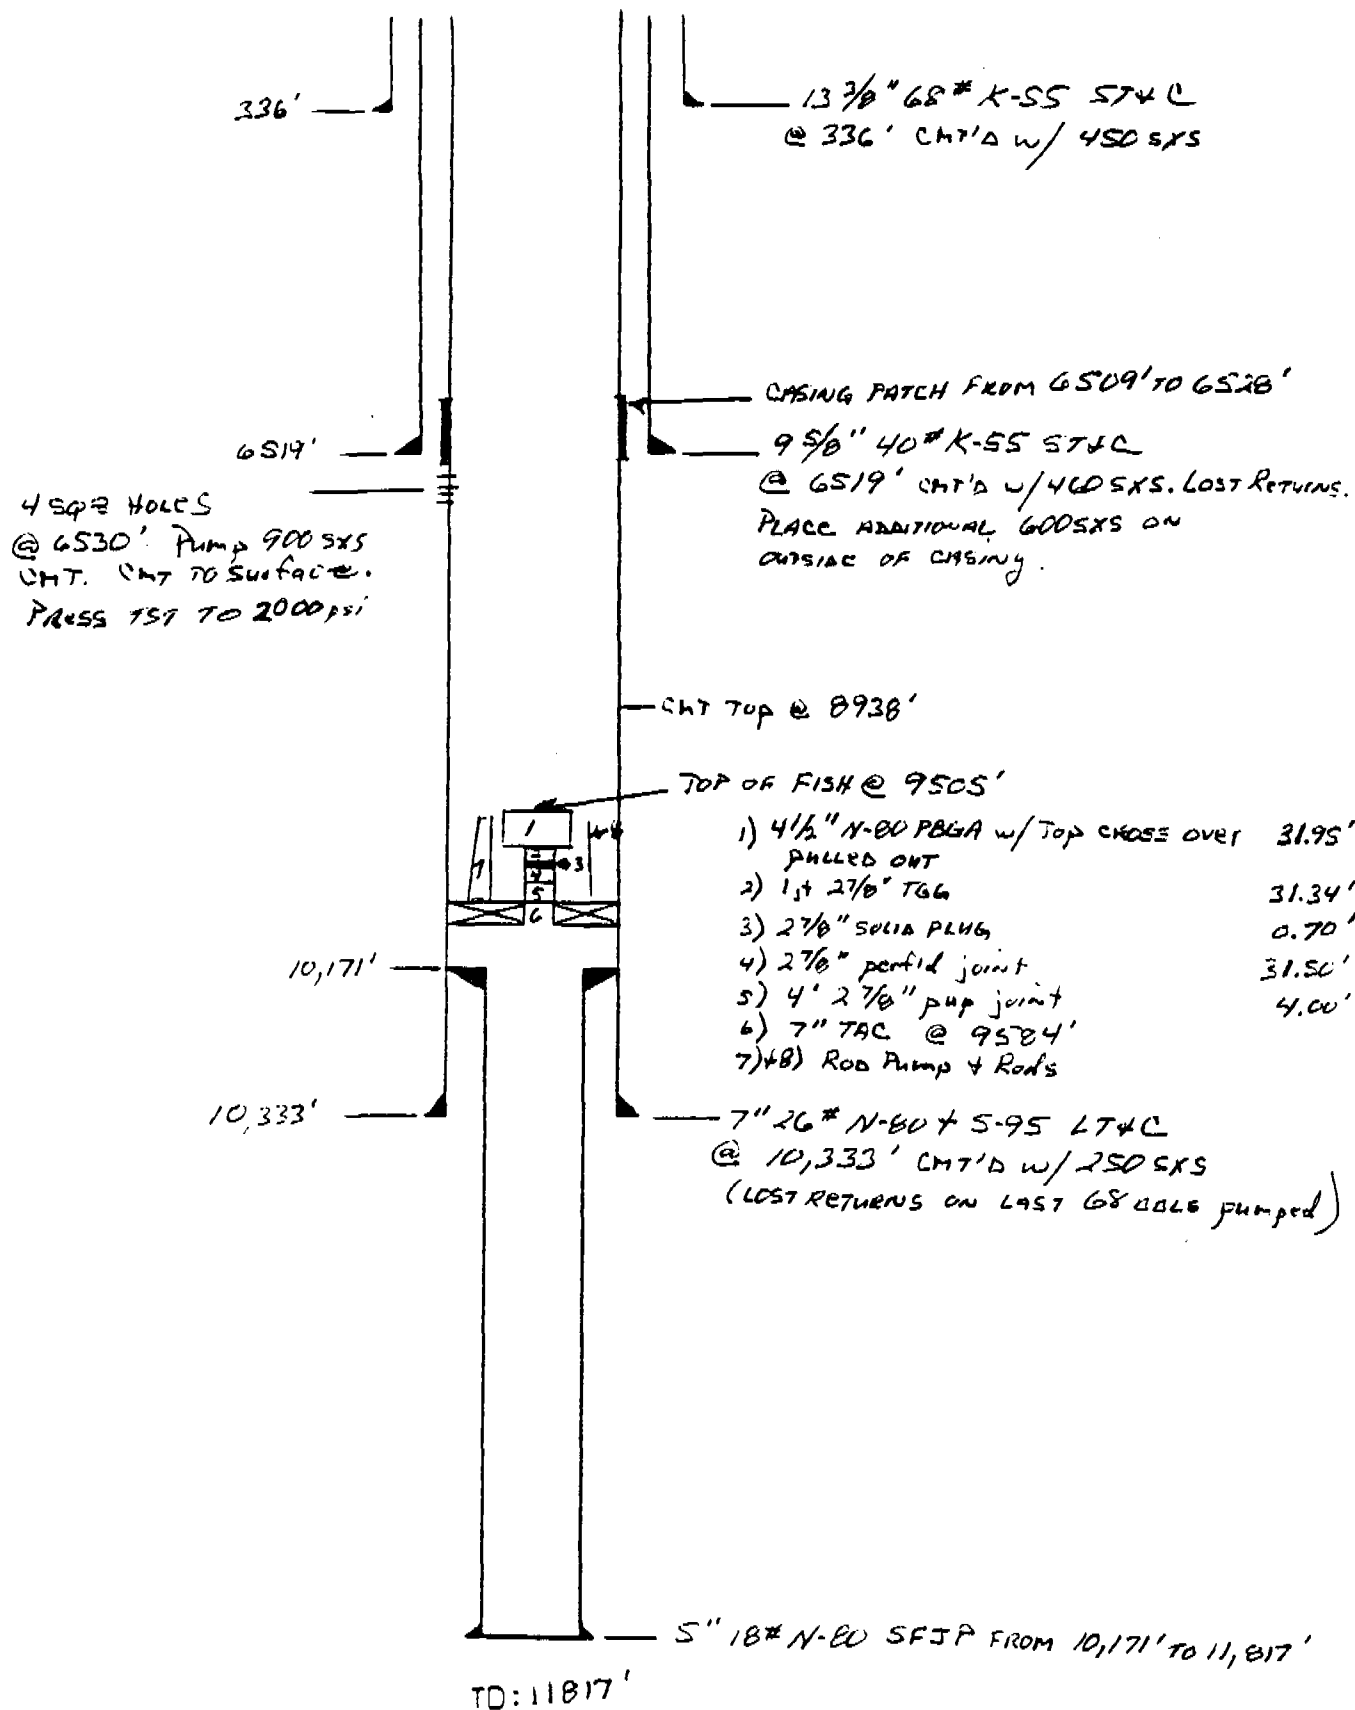 336'
13 3/8" 68# K-55 ST&C
@ 336' CMT'D w/ 450 SXS
CASING PATCH FROM 6509' TO 6528'
6519'
9 5/8" 40# K-55 ST&C
@ 6519' CMT'D w/ 460 SXS. LOST RETURNS.
PLACE ADDITIONAL 600 SXS ON
OUTSIDE OF CASING.
4 SQZ HOLES
@ 6530' Pump 900 SXS
CMT. CMT TO Surface.
PRESS TST TO 2000 psi
CMT TOP @ 8938'
TOP OF FISH @ 9505'
1) 4 1/2" N-80 PBGA w/ TOP CROSS OVER 31.95'
PULLED OUT
2) 1 jt 2 7/8" TBG 31.34'
3) 2 7/8" SOLID PLUG 0.70'
4) 2 7/8" perf'd joint 31.50'
5) 4' 2 7/8" pup joint 4.00'
6) 7" TAC @ 9584'
7)+8) ROD Pump + Rods
1
2
3
4
5
6
7
10,171'
10,333'
7" 26# N-80 + S-95 LT&C
@ 10,333' CMT'D w/ 250 SXS
(LOST RETURNS ON LAST 68 BBLS pumped)
5" 18# N-80 SFJP FROM 10,171' TO 11,817'
TD: 11817'